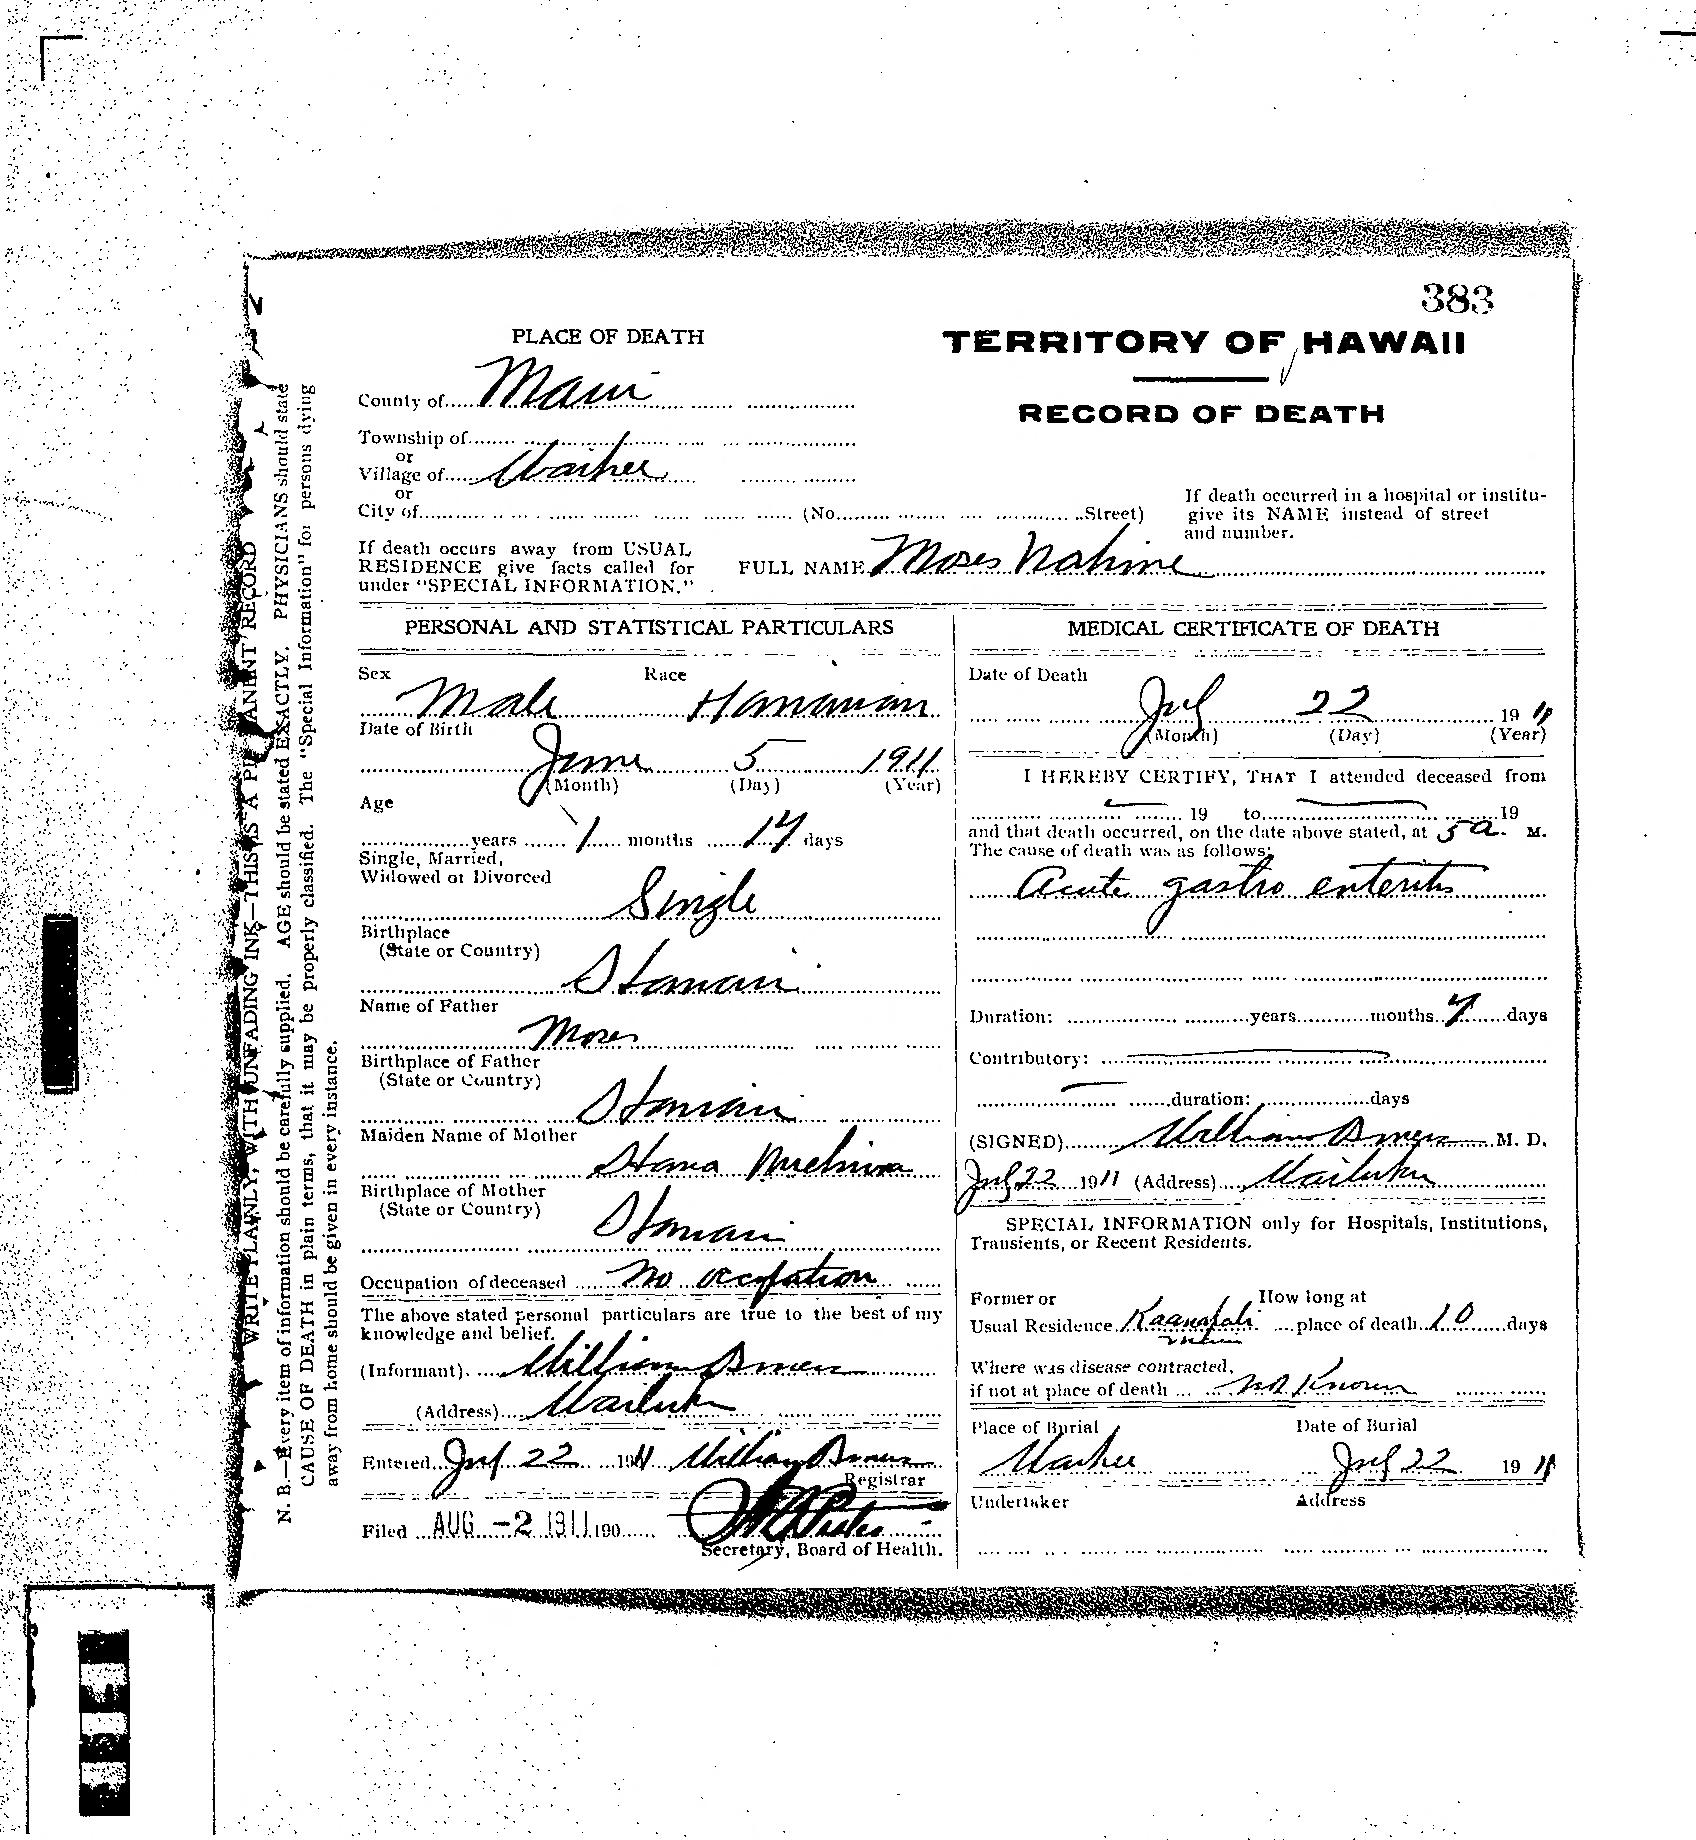 383
PLACE OF DEATH
TERRITORY OF HAWAII
RECORD OF DEATH
County of Maui
Township of
or
Village of Waihee
or
City of (No. Street)
If death occurred in a hospital or institu-
give its NAME instead of street
and number.
If death occurs away from USUAL
RESIDENCE give facts called for
under "SPECIAL INFORMATION."
FULL NAME Moses Nahine
PERSONAL AND STATISTICAL PARTICULARS
Sex Race
Male Hawaiian
Date of Birth
June 5 1911
(Month) (Day) (Year)
Age
years 1 months 17 days
Single, Married,
Widowed or Divorced
Single
Birthplace
(State or Country)
Hawaii
Name of Father
Moses
Birthplace of Father
(State or Country)
Hawaii
Maiden Name of Mother
Hana
Birthplace of Mother
(State or Country)
Hawaii
Occupation of deceased No occupation
The above stated personal particulars are true to the best of my
knowledge and belief.
(Informant) William
(Address) Wailuku
Entered July 22 1911 William
Registrar
Filed AUG -2 1911 190
Secretary, Board of Health.
MEDICAL CERTIFICATE OF DEATH
Date of Death
July 22 1911
(Month) (Day) (Year)
I HEREBY CERTIFY, THAT I attended deceased from
19 to 19
and that death occurred, on the date above stated, at 5 a. M.
The cause of death was as follows:
Acute gastro enteritis
Duration: years months 7 days
Contributory:
duration: days
(SIGNED) William M. D.
July 22 1911 (Address) Wailuku
SPECIAL INFORMATION only for Hospitals, Institutions,
Transients, or Recent Residents.
Former or How long at
Usual Residence Kaanapali place of death 10 days
Where was disease contracted,
if not at place of death not Known
Place of Burial Date of Burial
Waihee July 22 1911
Undertaker Address
WRITE PLAINLY, WITH UNFADING INK—THIS IS A PERMANENT RECORD
N. B.—Every item of information should be carefully supplied. AGE should be stated EXACTLY. PHYSICIANS should state
CAUSE OF DEATH in plain terms, that it may be properly classified. The "Special Information" for persons dying
away from home should be given in every instance.